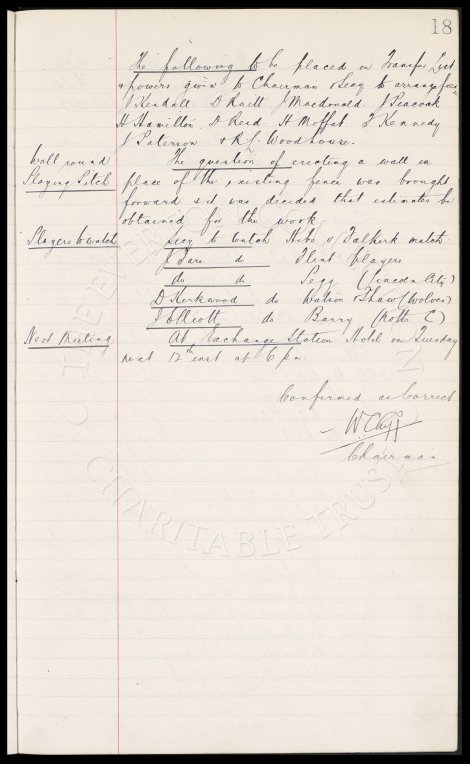 18
The following to be placed on Transfer List
& powers given to Chairman & Secy to arrange fees.
J Kendall D Raitt J Macdonald J Peacock
H Hamilton D Reid H Moffat F Kennedy
J Paterson & R C Woodhouse.
Wall round The question of erecting a wall in
Playing Pitch place of the existing fence was brought
forward & it was decided that estimates be
obtained for the work
Players to watch Secy to watch Hibs v Falkirk match
J Fare do Flint players
do do Legg (Lincoln City)
D Kirkwood do Watson & Shaw (Wolves)
J Elliott do Barry (Notts C)
Next Meeting At Exchange Station Hotel on Tuesday
next 12th inst at 6 pm.
Confirmed as Correct
W C Cuff
Chairman
THE EVERTON COLLECTION
CHARITABLE TRUST